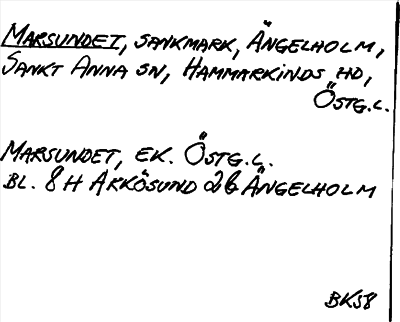 MARSUNDET, SANKMARK, ÄNGELHOLM,
SANKT ANNA SN, HAMMARKINDS HD,
ÖSTG.L.
MARSUNDET, EK. ÖSTG.L.
BL. 8H ARKÖSUND 2b ÄNGELHOLM
BKS8